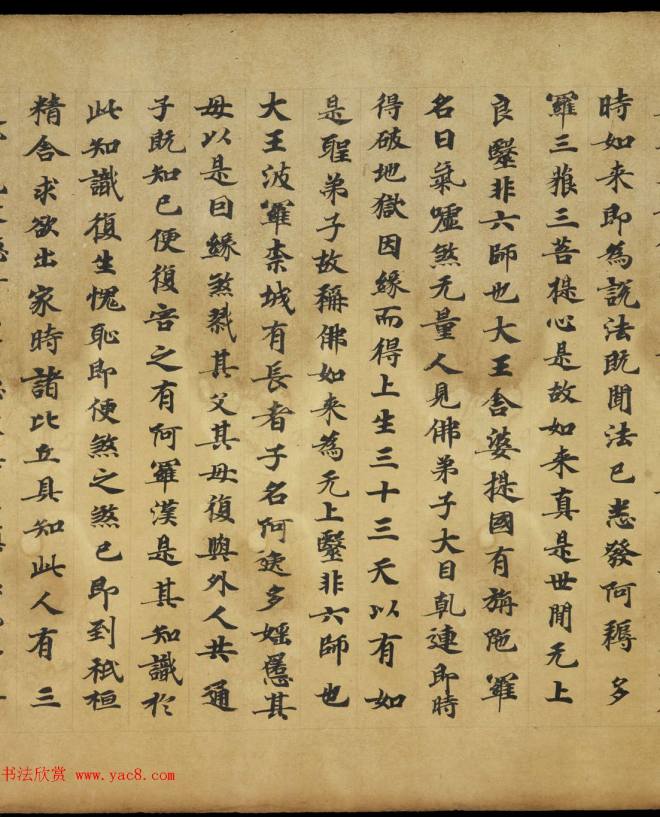 時如来即為説法既聞法已悉發阿耨多
羅三藐三菩提心是故如来真是世間无上
良毉非六師也大王舎婆提國有旃陁羅
名曰氣噓煞无量人見佛弟子大目乾連即時
得破地獄因緣而得上生三十三天以有如
是聖弟子故稱佛如来為无上毉非六師也
大王波羅柰城有長者子名阿逸多婬慝其
母以是因緣煞戮其父其母復與外人共通
子既知已便復害之有阿羅漢是其知識於
此知識復生愧恥即便煞之煞已即到祇桓
精舍求欲出家時諸比丘具知此人有三
书法欣赏 www.yac8.com